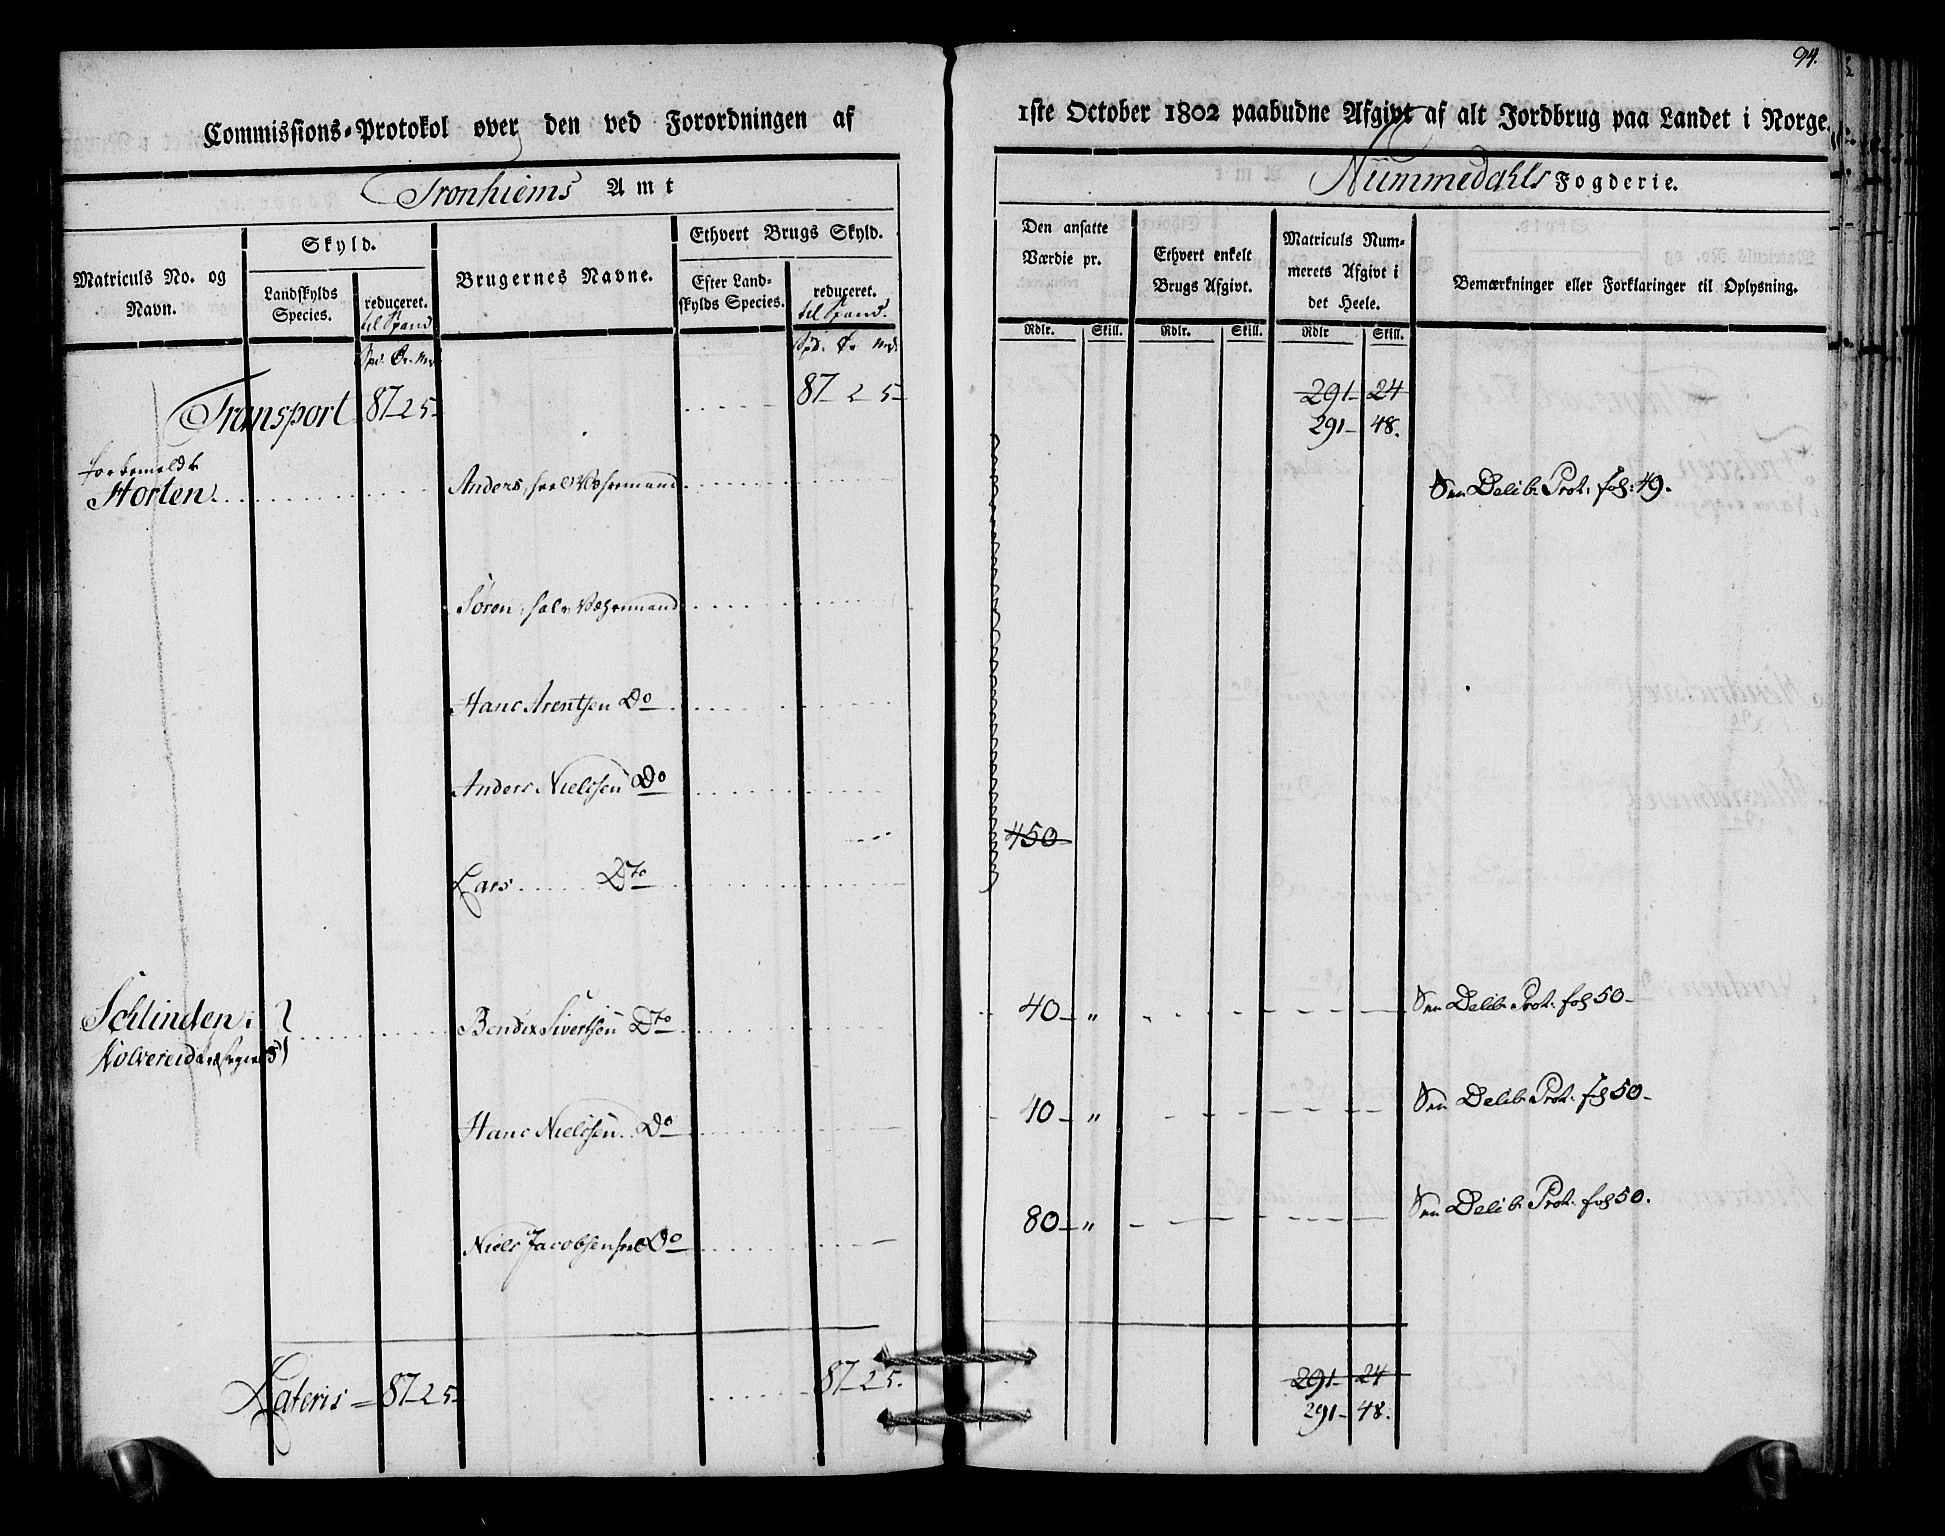 94.
Commissions-Protokol over den ved Forordningen af 1ste October 1802 paabudne Afgivt af alt Jordbrug paa Landet i Norge.
Tronhiems Amt
Nummedahls Fogderie.
Matriculs No. og Navn.
Skyld.
Landskylds Species.
reduceret.
til Spand
Brugernes Navne.
Ethvert Brugs Skyld.
Efter Landskylds Species.
reduceret.
til Spand.
Den ansatte Værdie pr.
Ethvert enkelt Brugs Afgivt.
Matriculs Nummerets Afgivt i det Heele.
Bemærkninger eller Forklaringer til Oplysning.
Rdlr. Skill. Rdlr. Skill. Rdlr Skill.
Spd. Ør. Mrk.
Spd. Ør Mrk.
Transport 87 2 5 87 2 5 291 24
291 48.
forbemeldte
Horten Anders, Huusmand See Delib. Prot. fol: 49.
Søren,
Hans Arentsen Do
Anders Nielssen Do
450
Lars Dto
Schlinden i
Kolvereids Bendix Sivertsen Dto 40 " See Delib. Prot. fol 50
Hans Nielssen Do 40 " See Delib. Prot. fol 50
Niels Jacobsen Do 80 " See Delib. Prot. fol 50.
Lateris = 87 2 5 87 2 5. 291 24
291 48.